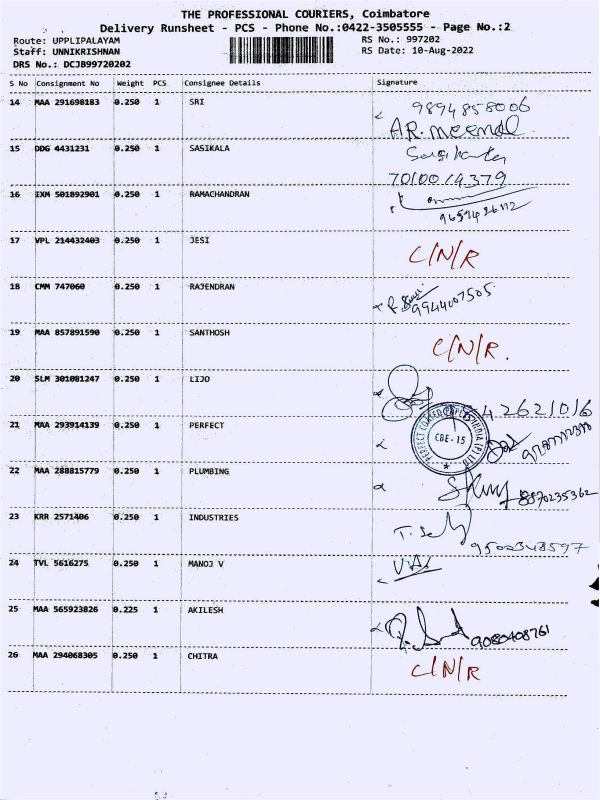 THE PROFESSIONAL COURIERS, Coimbatore
Delivery Runsheet - PCS - Phone No.:0422-3505555 - Page No.:2
Route: UPPLIPALAYAM RS No.: 997202
Staff: UNNIKRISHNAN RS Date: 10-Aug-2022
DRS No.: DCJB99720202
S No Consignment No Weight PCS Consignee Details Signature
14 MAA 291698183 0.250 1 SRI 9894858006
AR. meenal
15 DDG 4431231 0.250 1 SASIKALA
7010014379
16 IXM 501892901 0.250 1 RAMACHANDRAN
17 VPL 214432403 0.250 1 JESI C/N/R
18 CMM 747060 0.250 1 RAJENDRAN 9944007505
19 MAA 857891590 0.250 1 SANTHOSH C/N/R.
20 SLM 301081247 0.250 1 LIJO
21 MAA 293914139 0.250 1 PERFECT CBE-15
22 MAA 288815779 0.250 1 PLUMBING 8870235362
23 KRR 2571406 0.250 1 INDUSTRIES
9500348597
24 TVL 5616275 0.250 1 MANOJ V
25 MAA 565923826 0.225 1 AKILESH 9080408761
26 MAA 294068305 0.250 1 CHITRA C/N/R